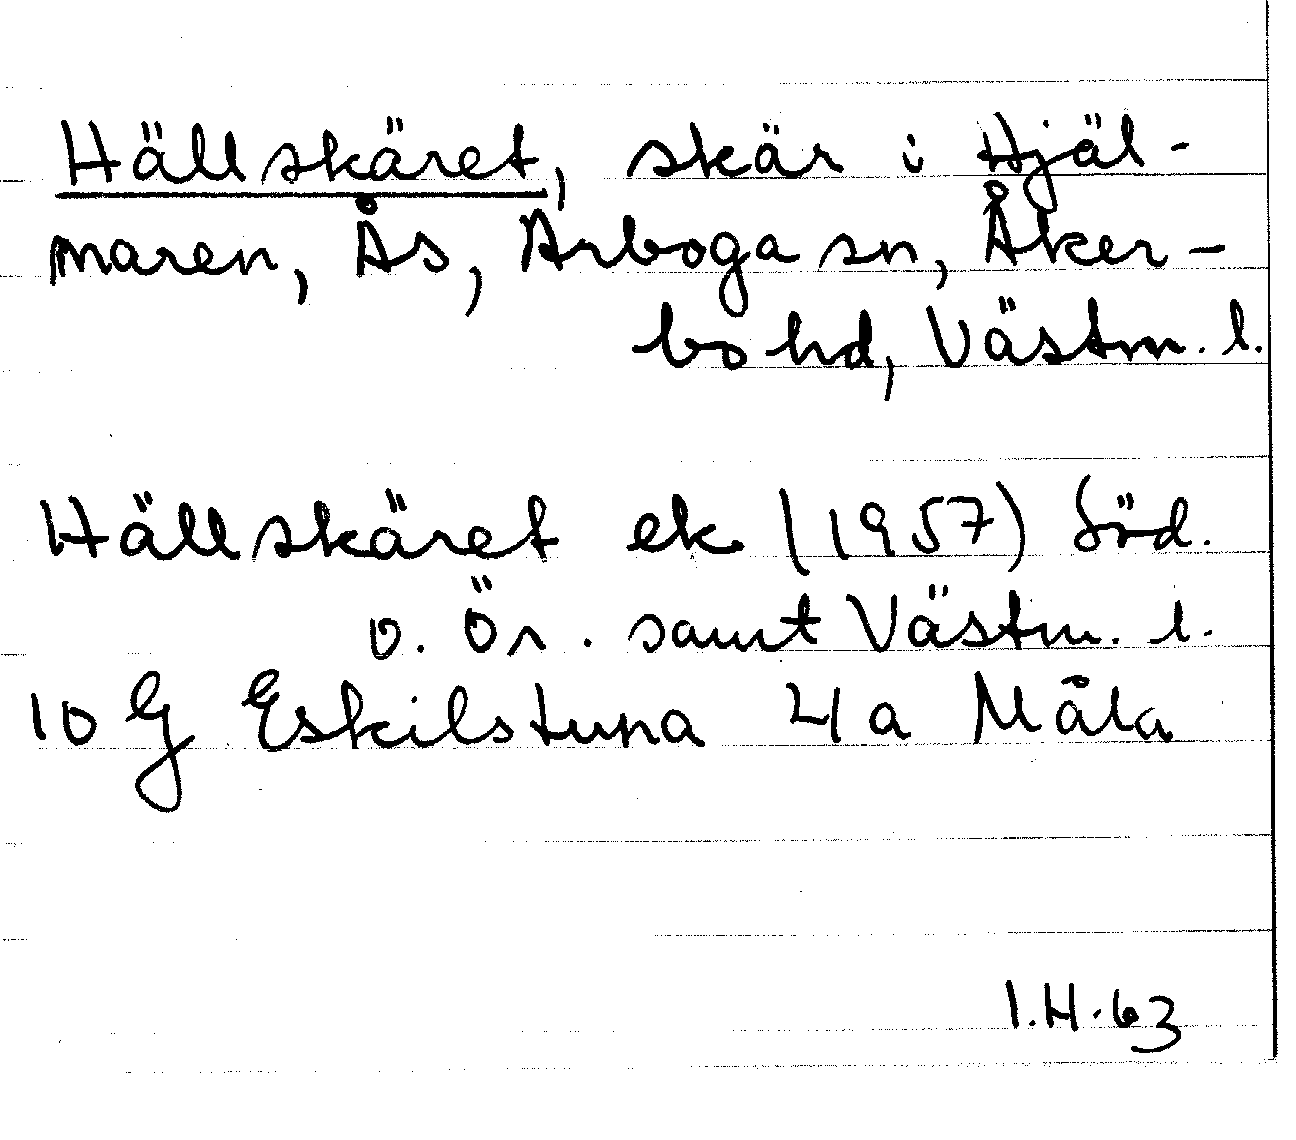 Hällskäret, skär i Hjäl-
maren, Ås, Arboga sn, Åker-
bo hd, Västm. l.
Hällskäret ek (1957) Söd.
o. Ör. samt Västm. l.
10 G Eskilstuna 4a Måla
I.H. 63